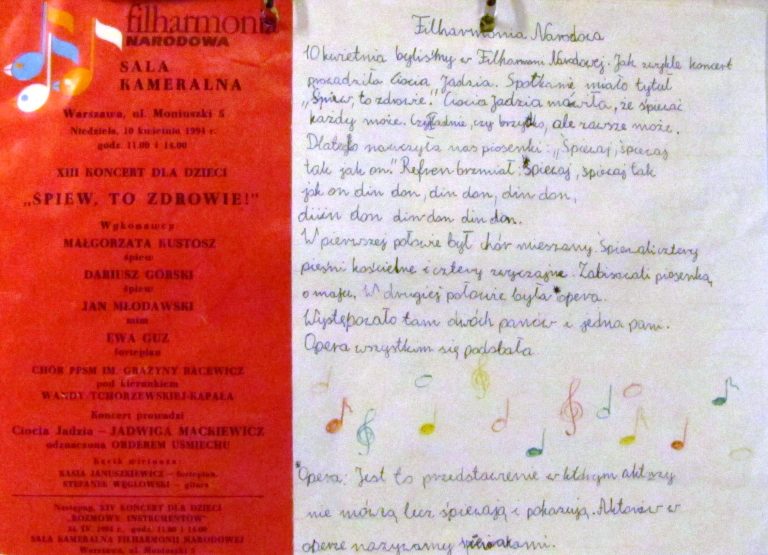 filharmonia
NARODOWA
SALA
KAMERALNA
Warszawa, ul. Moniuszki 5
Niedziela, 10 kwietnia 1994 r.
godz. 11.00 i 14.00
XIII KONCERT DLA DZIECI
„ŚPIEW, TO ZDROWIE!"
Wykonawcy
MAŁGORZATA KUSTOSZ
śpiew
DARIUSZ GÓRSKI
śpiew
JAN MŁODAWSKI
mim
EWA GUZ
fortepian
CHÓR PPSM IM. GRAŻYNY BACEWICZ
pod kierunkiem
WANDY TCHORZEWSKIEJ-KAPAŁA
Koncert prowadzi
Ciocia Jadzia – JADWIGA MACKIEWICZ
odznaczona ORDEREM UŚMIECHU
Kącik wirtuoza:
KASIA JANUSZKIEWICZ – fortepian
STEFANEK WĘGŁOWSKI – gitara
Następny, XIV KONCERT DLA DZIECI
"ROZMOWY INSTRUMENTÓW"
24. IV. 1994 r., godz. 11.00 i 14.00
SALA KAMERALNA FILHARMONII NARODOWEJ
Warszawa, ul. Moniuszki 5
Filharmonia Narodowa
10 kwietnia byliśmy w Filharmoni Narodowej. Jak zwykle koncert
prowadziła Ciocia Jadzia. Spotkanie miało tytuł
„Śpiew, to zdrowie." Ciocia Jadzia mówiła, że śpiewać
każdy może. Czy ładnie, czy brzydko, ale zawsze może.
Dlatego nauczyła nas piosenki: „Śpiewaj, śpiewaj
tak jak on." Refren brzmiał: Śpiewaj, śpiewaj tak
jak on din don, din don, din don,
diiin don din don din don.
W pierwszej połowie był chór mieszany. Śpiewali cztery
pieśni kościelne i cztery zwyczajne. Zabisowali piosenką
o maju. W drugiej połowie była opera.
Występowało tam dwóch panów i jedna pani.
Opera wszystkim się podobała.
Opera: Jest to przedstawienie w którym aktorzy
nie mówią lecz śpiewają i pokazują. Aktorów w
operze nazywamy śpiewakami.